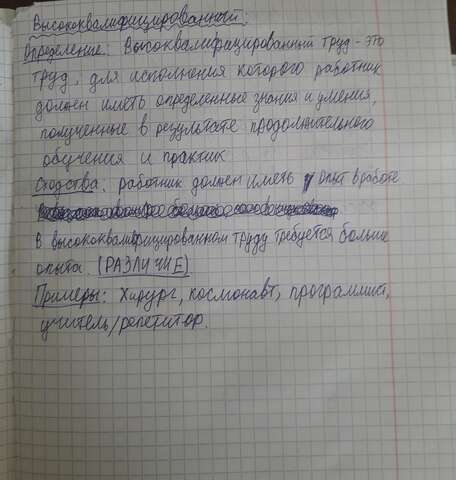 Высококвалифицированный.
Определение: Высококвалифицированный труд - это
труд, для исполнения которого работник
должен иметь определённые знания и умения,
полученные в результате продолжительного
обучения и практик
Сходства: работник должен иметь опыт в работе
В высококвалифицированном труду требуется больше
опыта. (РАЗЛИЧИЕ)
Примеры: Хирург, космонавт, программист,
учитель/репетитор.